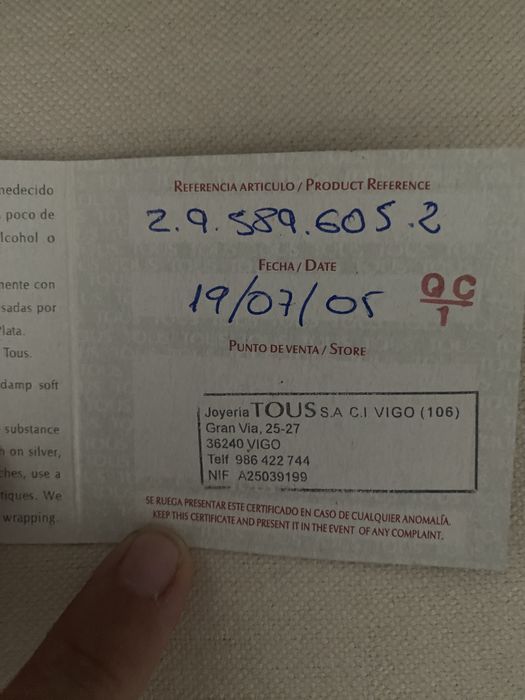 nedecido
poco de
lcohol o
nente con
sadas por
Plata.
Tous.
damp soft
substance
n on silver,
ches, use a
tiques. We
wrapping.
REFERENCIA ARTICULO / PRODUCT REFERENCE
2.9.589.605.2
FECHA / DATE
19/07/05
QC
1
PUNTO DE VENTA / STORE
Joyeria TOUS S.A C.I VIGO (106)
Gran Via, 25-27
36240 VIGO
Telf 986 422 744
NIF A25039199
SE RUEGA PRESENTAR ESTE CERTIFICADO EN CASO DE CUALQUIER ANOMALÍA.
KEEP THIS CERTIFICATE AND PRESENT IT IN THE EVENT OF ANY COMPLAINT.